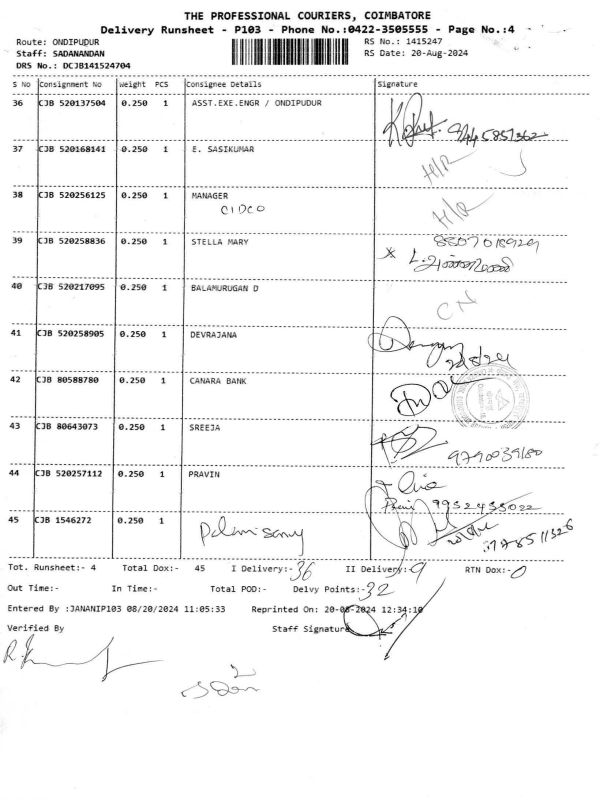 THE PROFESSIONAL COURIERS, COIMBATORE
Delivery Runsheet - P103 - Phone No.:0422-3505555 - Page No.:4
Route: ONDIPUDUR RS No.: 1415247
Staff: SADANANDAN RS Date: 20-Aug-2024
DRS No.: DCJB141524704
S No Consignment No Weight PCS Consignee Details Signature
36 CJB 520137504 0.250 1 ASST.EXE.ENGR / ONDIPUDUR
37 CJB 520168141 0.250 1 E. SASIKUMAR H/R
38 CJB 520256125 0.250 1 MANAGER H/R
CIDCO
39 CJB 520258836 0.250 1 STELLA MARY
40 CJB 520217095 0.250 1 BALAMURUGAN D CN
41 CJB 520258905 0.250 1 DEVRAJANA
42 CJB 80588780 0.250 1 CANARA BANK
43 CJB 80643073 0.250 1 SREEJA
9790039180
44 CJB 520257112 0.250 1 PRAVIN
9952435022
45 CJB 1546272 0.250 1 Palanisamy
Tot. Runsheet:- 4 Total Dox:- 45 I Delivery:- 36 II Delivery:- 9 RTN Dox:- 0
Out Time:- In Time:- Total POD:- Delvy Points:- 32
Entered By :JANANIP103 08/20/2024 11:05:33 Reprinted On: 20-08-2024 12:34:10
Verified By Staff Signature